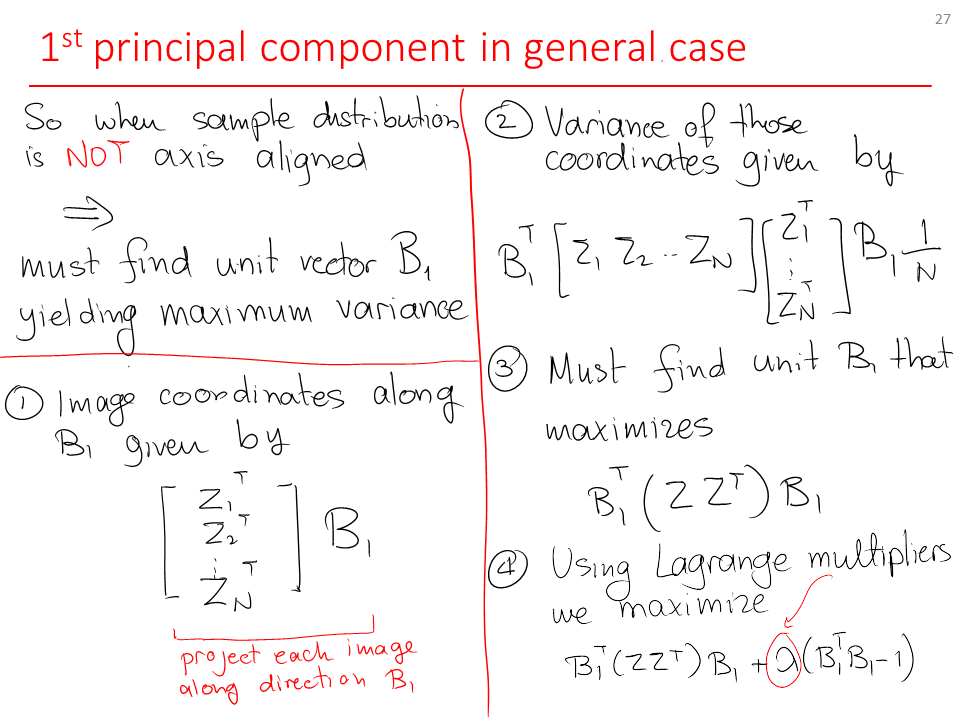 27
1st principal component in general case
So when sample distribution
is NOT axis aligned
⇒
must find unit vector B₁
yielding maximum variance
① Image coordinates along
B₁ given by
[ Z₁ᵀ
Z₂ᵀ
⋮
Z_Nᵀ ] B₁
project each image
along direction B₁
② Variance of those
coordinates given by
B₁ᵀ [Z₁ Z₂ .. Z_N] [Z₁ᵀ ⋮ Z_Nᵀ] B₁ 1/N
③ Must find unit B₁ that
maximizes
B₁ᵀ (Z Zᵀ) B₁
④ Using Lagrange multipliers
we maximize
B₁ᵀ(ZZᵀ) B₁ + λ(B₁ᵀB₁-1)